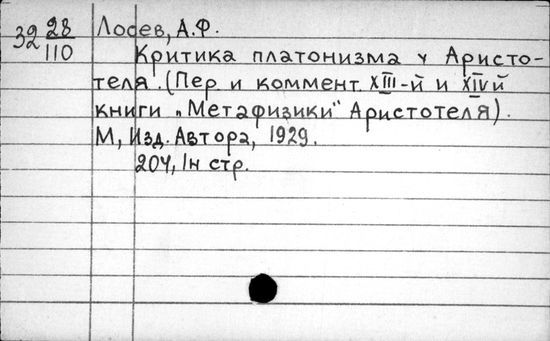 32 28/110 Лосев, А.Ф.
Критика платонизма у Аристо-
теля. (Пер и коммент XIII-й и XIV й
книги „Метафизики" Аристотеля).
М, Изд. Автора, 1929.
204, 1н стр.